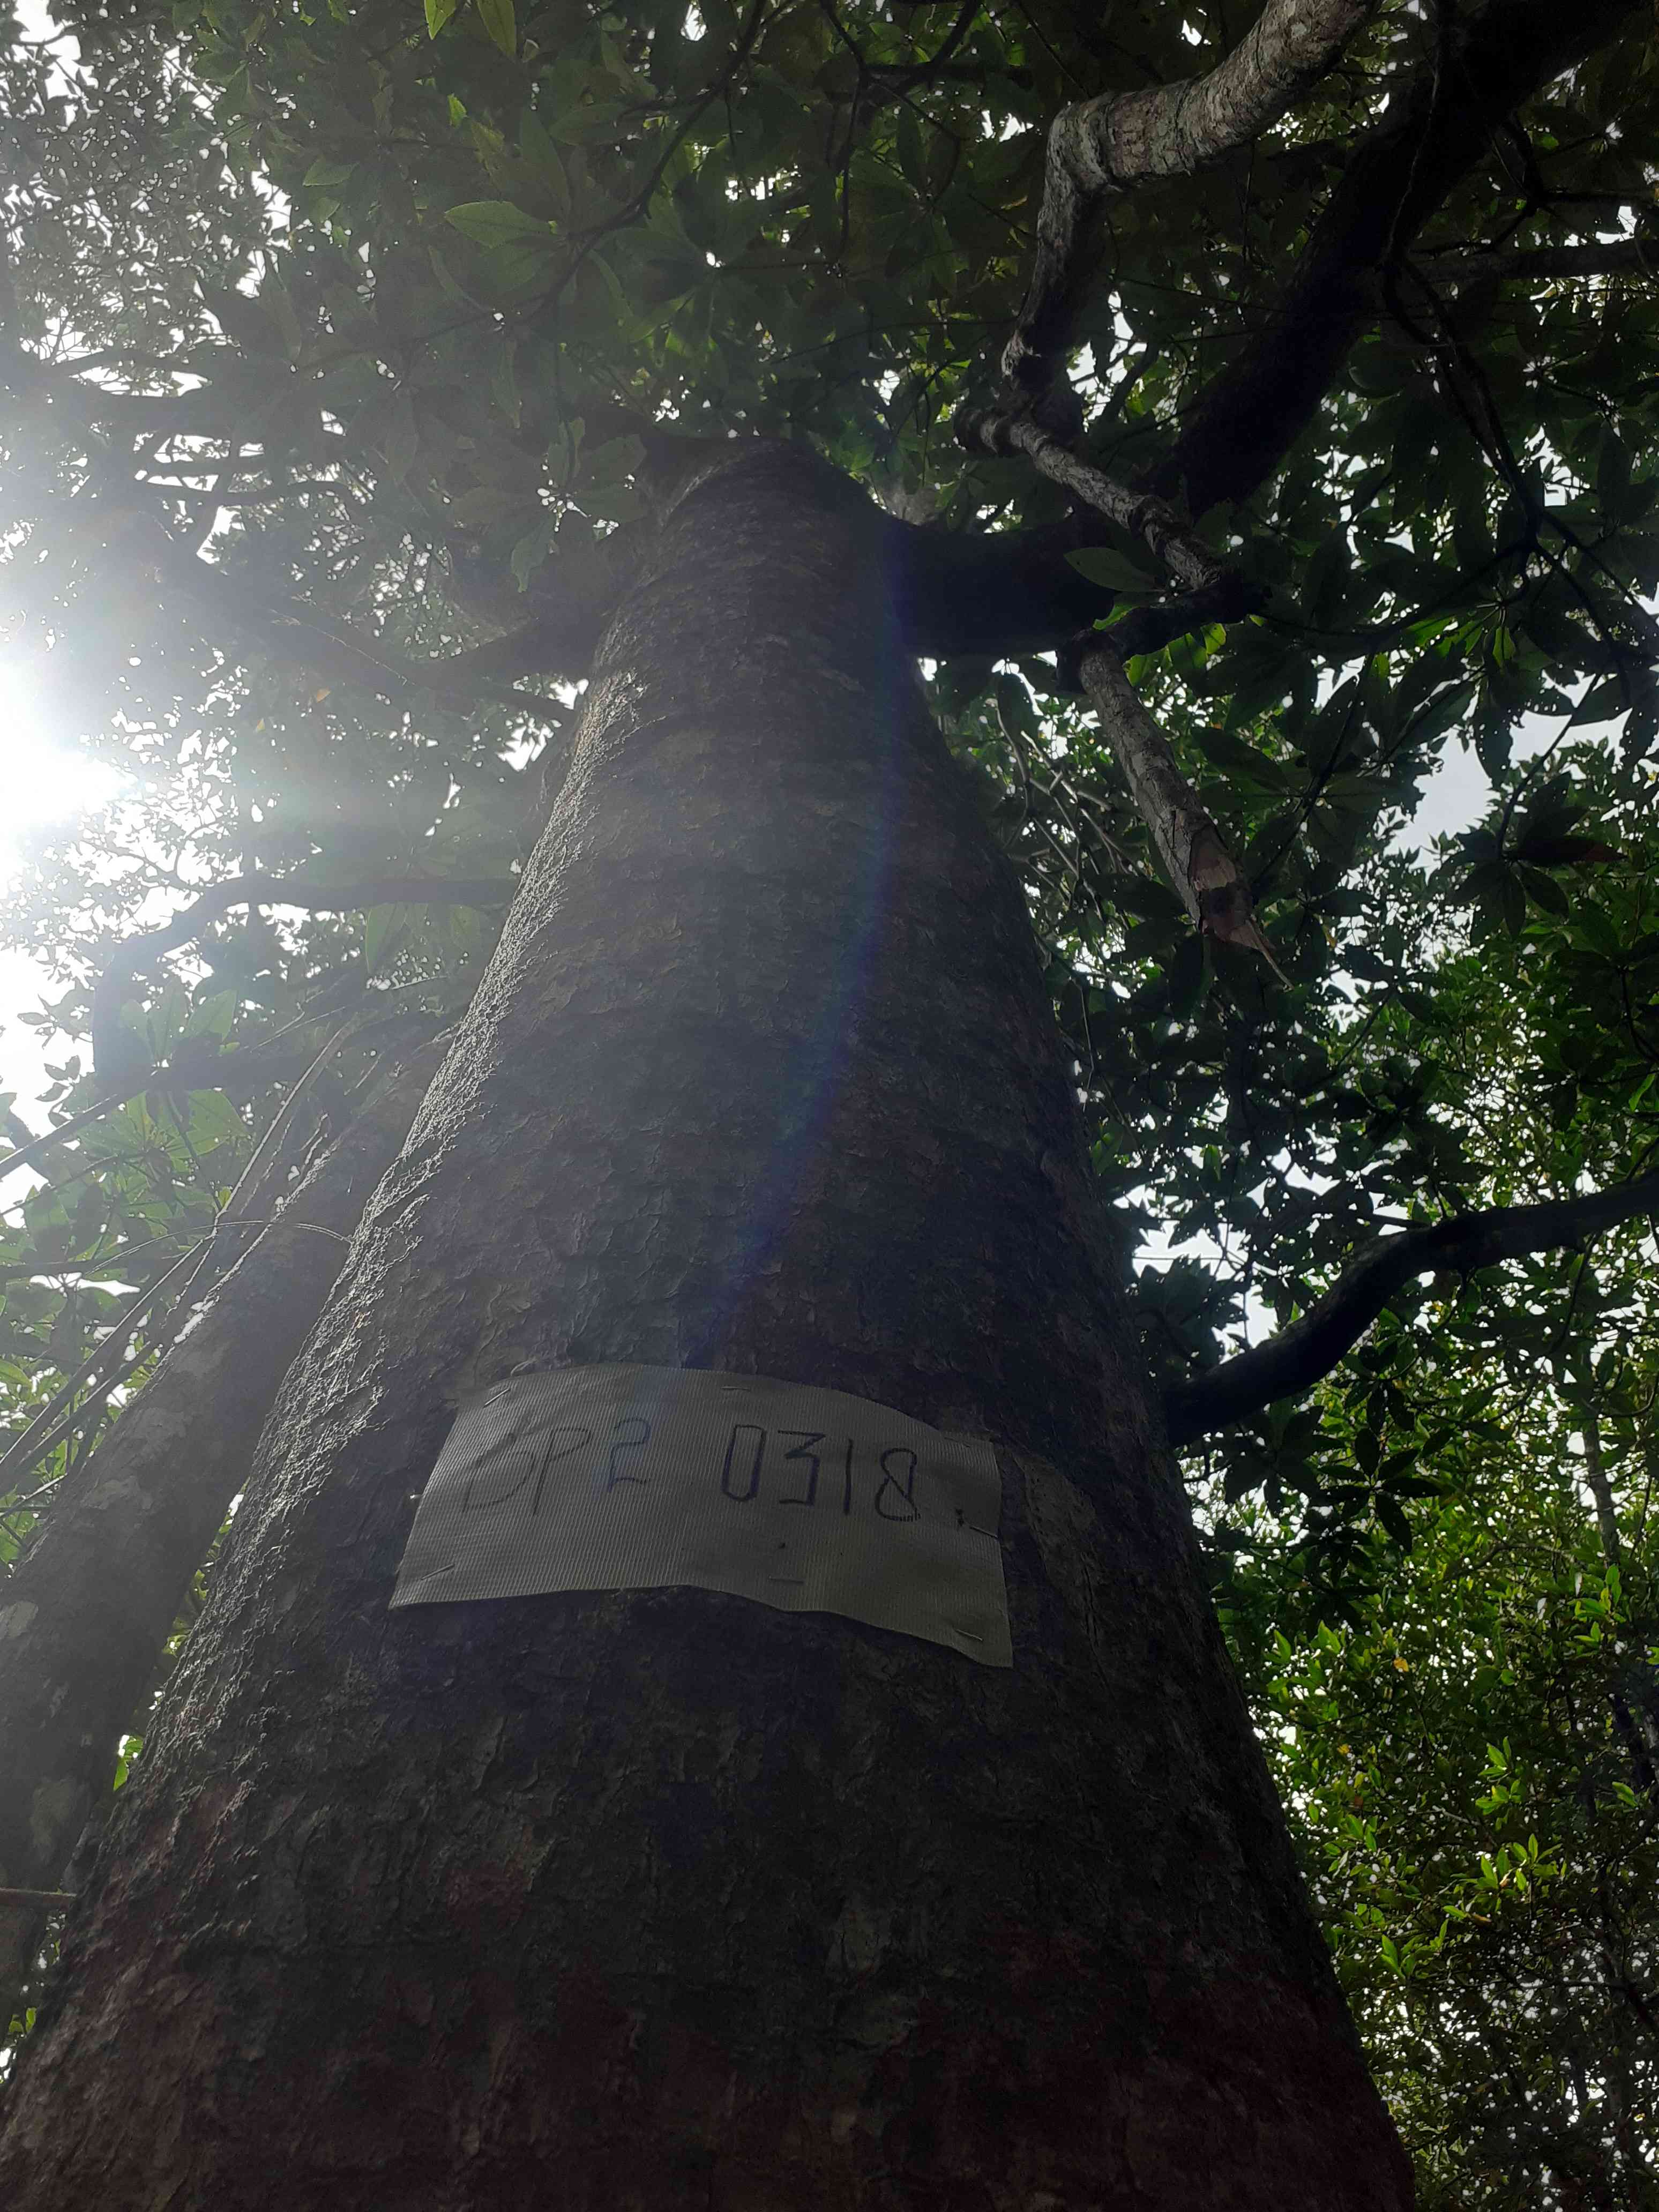 DP2 0318